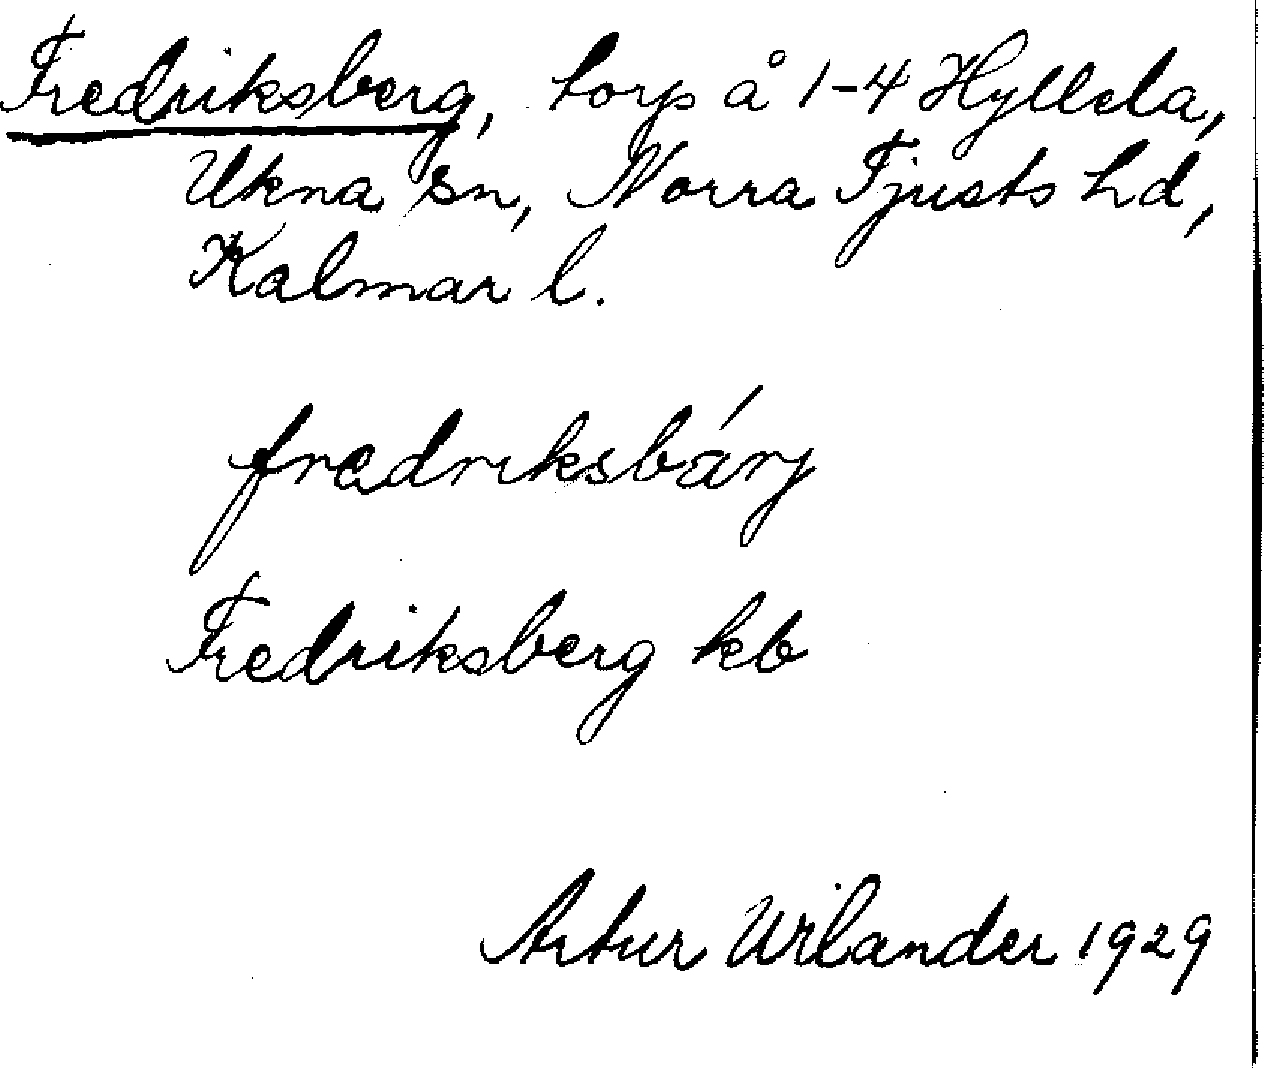 Fredriksberg, torp å 1-4 Hyllela,
Ukna sn, Norra Tjusts hd,
Kalmar l.
frædriksbárj
Fredriksberg kb
Artur Wilander 1929